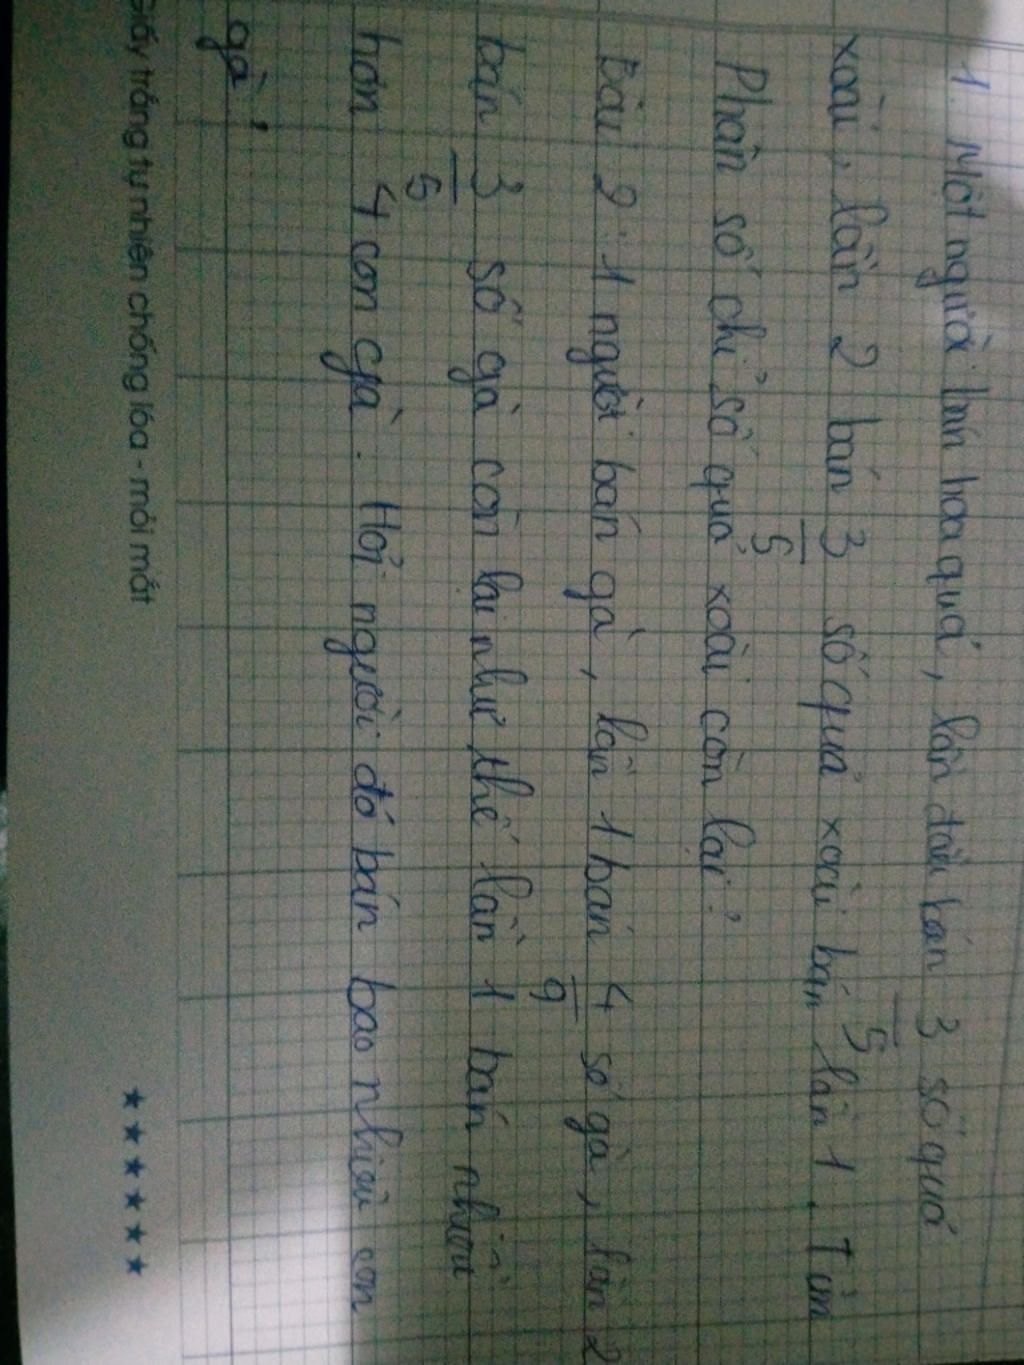 1. Một người bán hoa quả, lần đầu bán 3/5 số quả
xoài, lần 2 bán 3/5 số quả xoài bán lần 1. Tìm
Phân số chỉ số quả xoài còn lại?
Bài 2: 1 người bán gà, lần 1 bán 4/9 số gà, lần 2
bán 3/5 số gà còn lại như thế lần 1 bán nhiều
hơn 4 con gà. Hỏi người đó bán bao nhiêu con
gà?
Giấy trắng tự nhiên chống lóa - mỏi mắt
★★★★★★